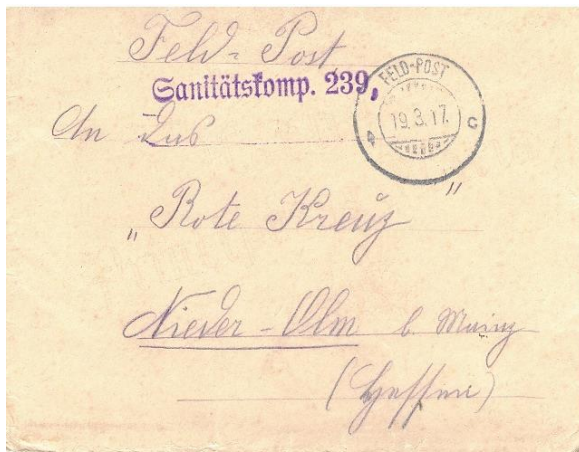 Feld-Post
Sanitätskomp. 239,
FELD-POST
19.3.17.
C
An Das
„Rote Kreuz"
Nieder-Olm b Mainz
(Hessen)